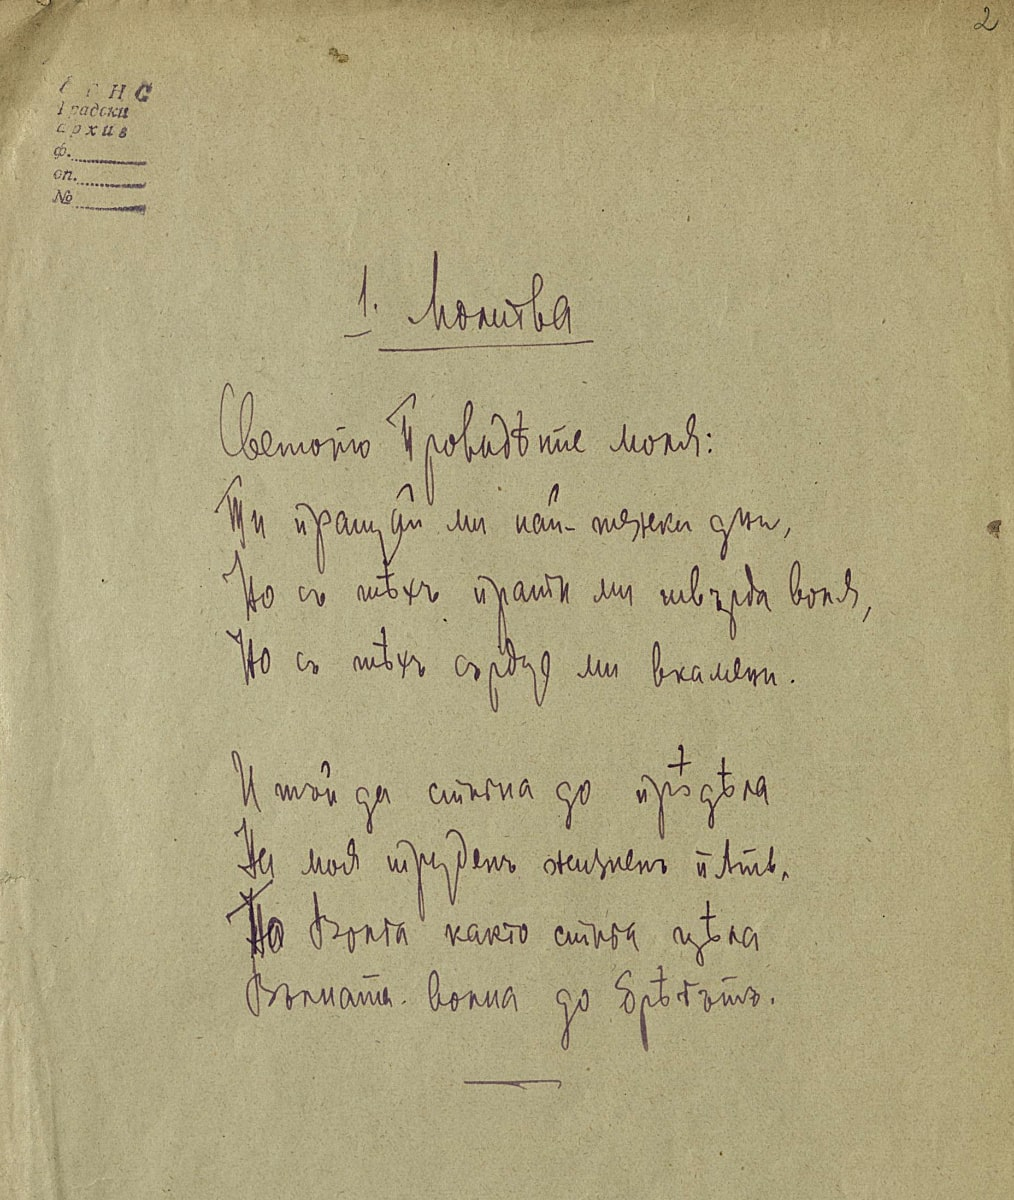 2
Градски
архив
ф.
оп.
№
1. Молитва
Светото Провидѣние моля:
Ти пращай ми най-тежки дни,
Но съ тѣхъ прати ми твърда воля,
Но съ тѣхъ сърдце ми вкамени.
И той да стигна до прѣдѣла
На моя труденъ жизненъ пѫть,
както стига цѣла
вълна до брѣгътъ.